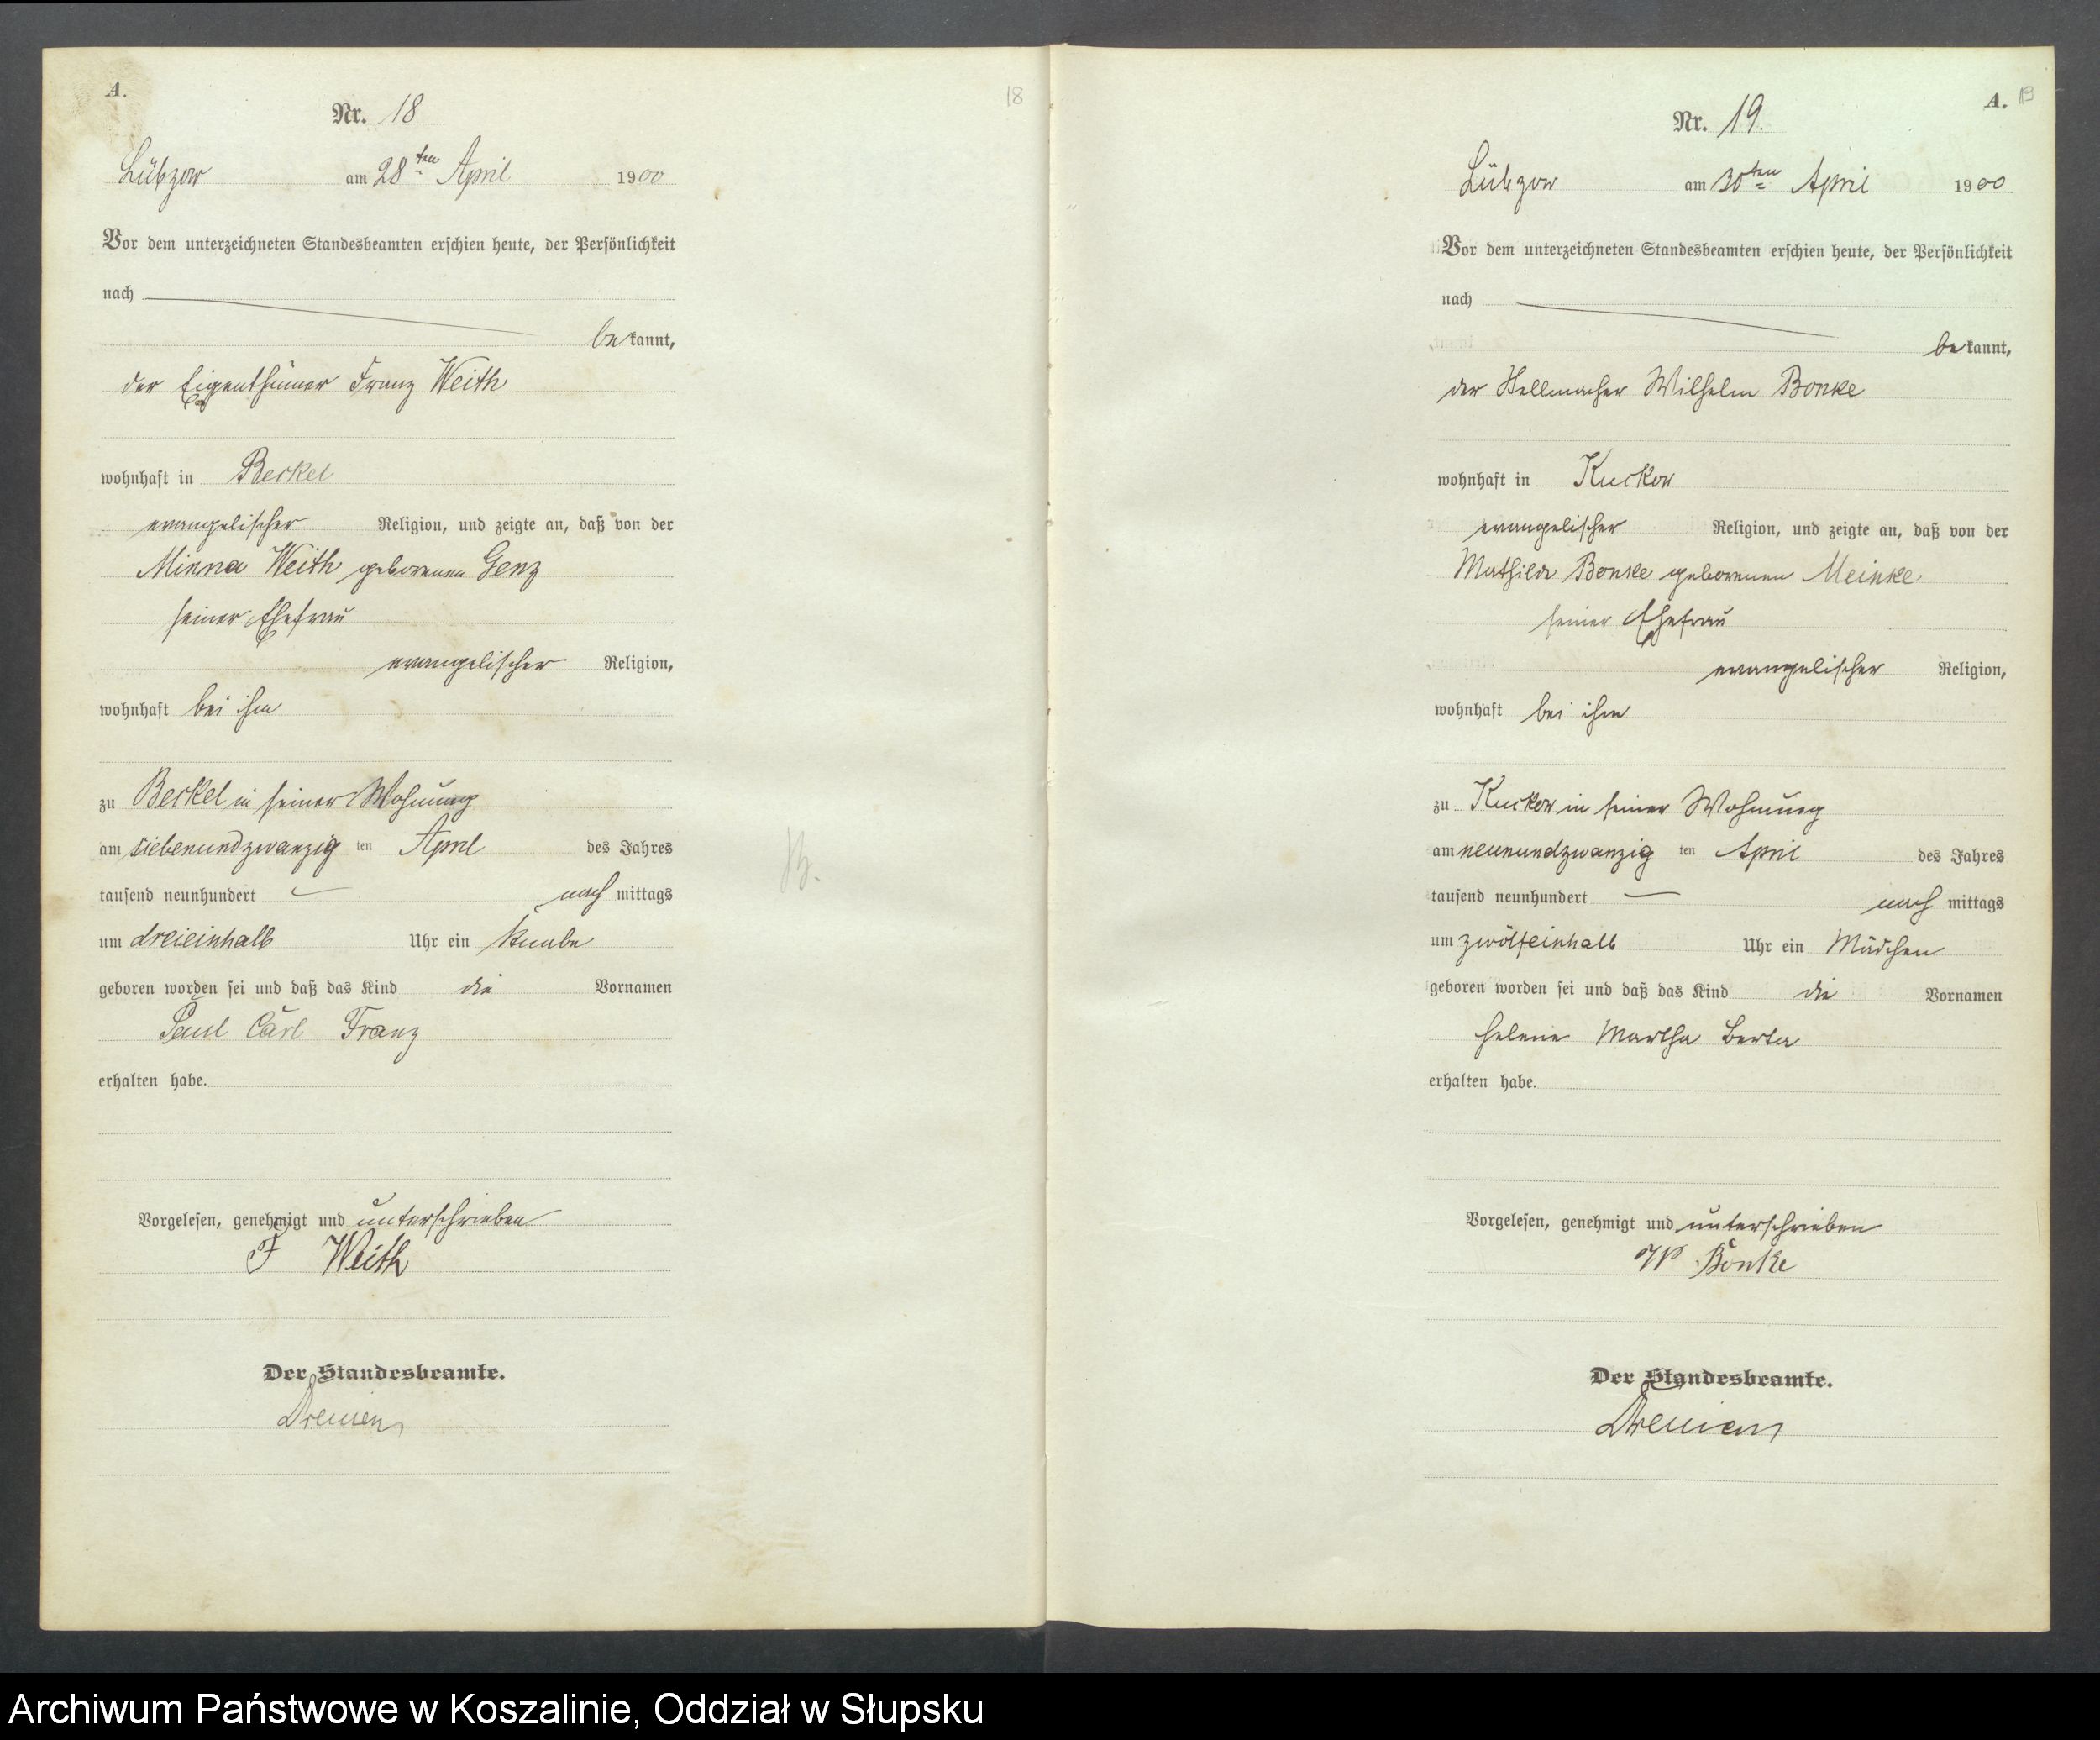 A.
Nr. 18
Lübzow am 28ten April 1900
Vor dem unterzeichneten Standesbeamten erschien heute, der Persönlichkeit
nach
bekannt,
der Eigenthümer Franz Weith
wohnhaft in Beckel
evangelischer Religion, und zeigte an, daß von der
Minna Weith geborenen Genz
seiner Ehefrau
evangelischer Religion,
wohnhaft bei ihm
zu Beckel in seiner Wohnung
am siebenundzwanzig ten April des Jahres
tausend neunhundert nach mittags
um dreieinhalb Uhr ein Knabe
geboren worden sei und daß das Kind die Vornamen
Paul Carl Franz
erhalten habe.
Vorgelesen, genehmigt und unterschrieben
F Weith
Der Standesbeamte.
18
A. 19
Nr. 19.
Lübzow am 30ten April 1900
Vor dem unterzeichneten Standesbeamten erschien heute, der Persönlichkeit
nach
bekannt,
der Stellmacher Wilhelm Bonke
wohnhaft in Kuckow
evangelischer Religion, und zeigte an, daß von der
Mathilde Bonke geborenen Meinke
seiner Ehefrau
evangelischer Religion,
wohnhaft bei ihm
zu Kuckow in seiner Wohnung
am neunundzwanzig ten April des Jahres
tausend neunhundert nach mittags
um zwölfeinhalb Uhr ein Mädchen
geboren worden sei und daß das Kind die Vornamen
Helene Martha Berta
erhalten habe.
Vorgelesen, genehmigt und unterschrieben
W Bonke
Der Standesbeamte.
Archiwum Państwowe w Koszalinie, Oddział w Słupsku